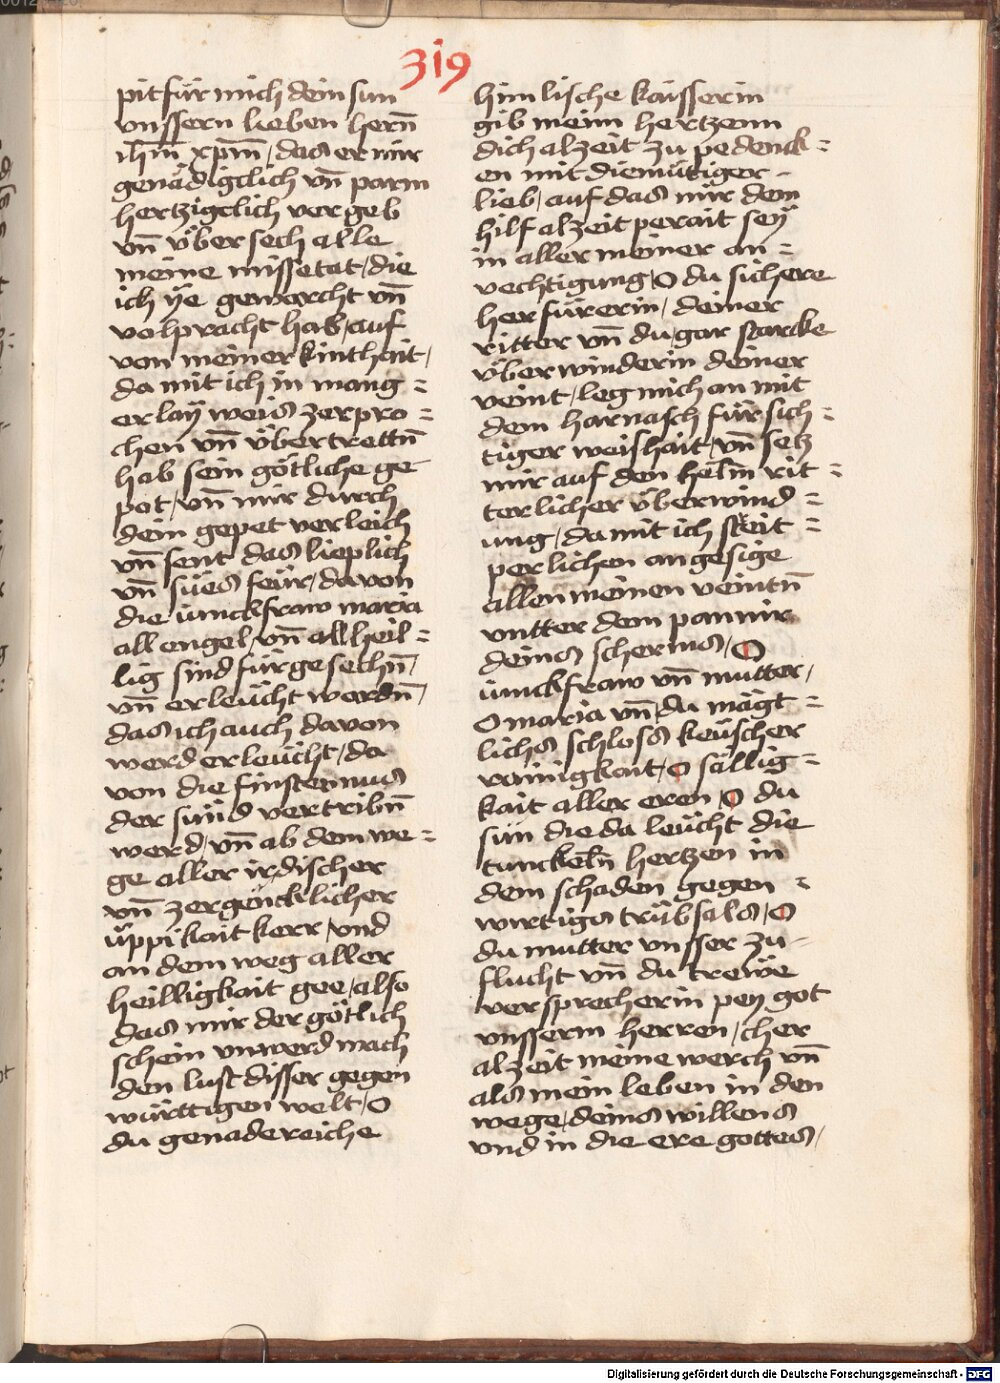 319
pit für mich dein sun
vnssern lieben hern̄
ih̄m xp̄m / das er mir
genädigclich vn̄ parm
hertzigclich vergeb
vn̄ v̈ber sech alle
meine missetat / die
ich ÿe geworcht vn̄
volpracht hab / auf
von meiner kinthait /
da mit ich in mang =
erlaÿ weis zerpro =
chen vn̄ v̈bertrettn̄
hab sein götliche ge
pot / vn̄ mir durch
dein gepet verleich
vn̄ sent das lieplich
vn̄ sües feür / davon
die iunckfraw maria
all engel / vn̄ all heil =
lig sind für gesechn̄ /
vn̄ erleücht wordn̄ /
das ich auch davon
werd erleücht / da
von die finsternus
der sünd vertribn̄
werd / vn̄ ab dem we =
ge aller irdischer
vn̄ zergöncklicher
üppikait kerr / vnd
an dem weg aller
heilligkait gee / also
das mir der götlich
schein vnwerd mach
den lust disser gegen
württigen welt / O
du genadereiche
himlische kaisserin
gib meim hertzenn
dich alzeit zu pedenck =
en mit diemütiger -
lieb / auf das mir dem
hilf alzeit perait seÿ
in aller meiner an =
vechtigung / O du sichere
herfürerin / deiner
ritter vn̄ du gar starcke
v̈berwinderin deiner
veint / leg mich an mit
dem harnasch fürsich =
tiger weishait / vn̄ setz
mir auf den helm rit =
terlicher v̈berwind =
ung / damit ich streit
perlichen angesige
allen meinen veintn̄
vntter dem pannir
deins scherms / O
iunckfraw vn̄ mutter /
O maria vn̄ du mägt =
lichs schloss keüscher
rainigkait / O sällig =
kait aller eren / O du
sun die da leücht die
tunckeln̄ hertzen in
dem schaden gegen =
wirtigs trübsals / O
du mutter vnsser zu -
flucht vn̄ du trewe
versprecherin pey got
vnsserm herren / cher
alzeit meine werch vn̄
als mein leben in den
wege / deins willens
vnd in die ere gottes /
Digitalisierung gefördert durch die Deutsche Forschungsgemeinschaft - DFG